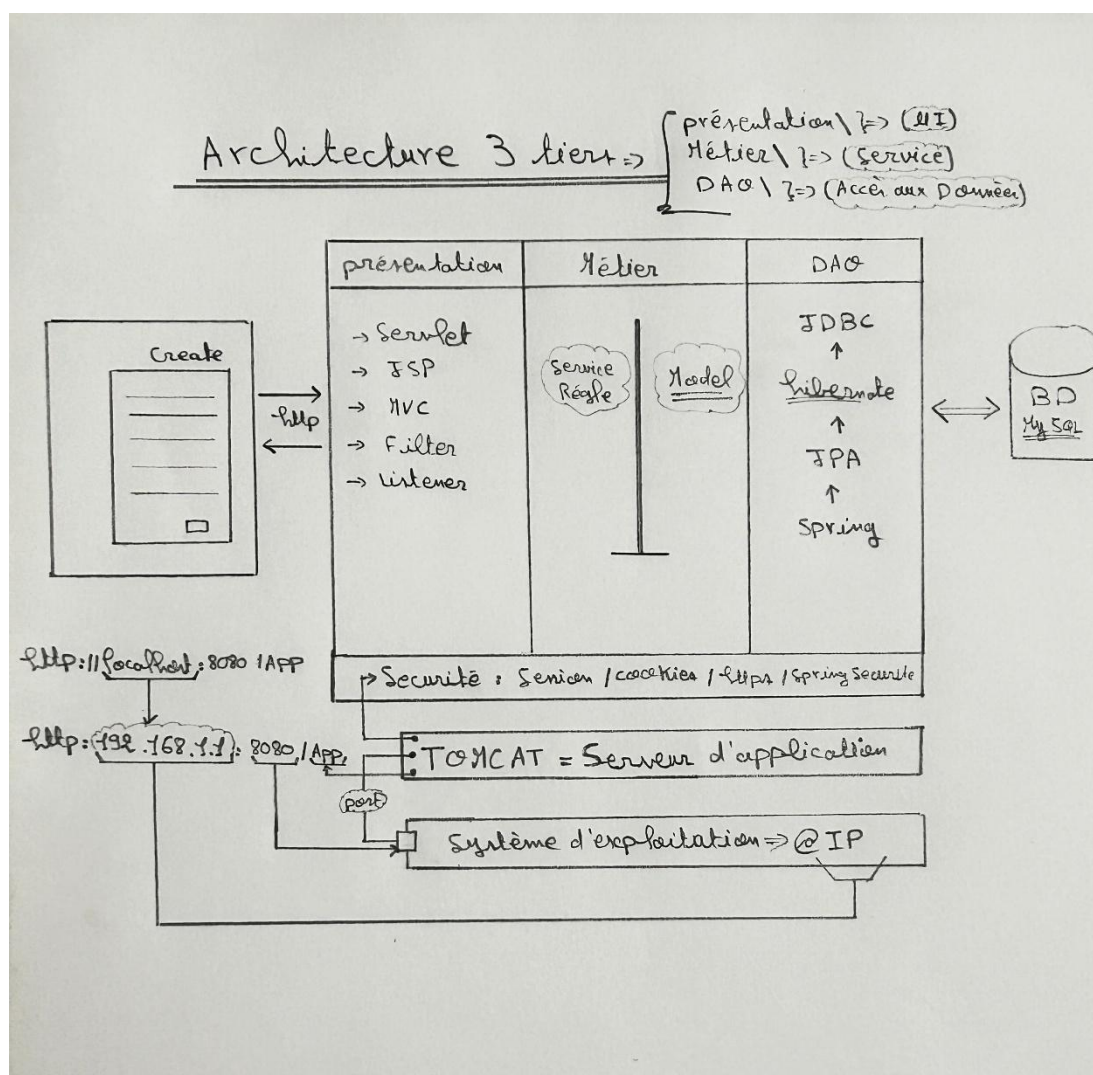 Architecture 3 tiers =>
présentation \ }=> (UI)
Métier \ }=> (Service)
DAO \ }=> (Accès aux Données)
présentation
Métier
DAO
Create
http
→ Servlet
→ JSP
→ MVC
→ Filter
→ Listener
Service
Régle
Model
JDBC
↑
hibernate
↑
JPA
↑
Spring
BD
My SQL
→ Securité : Session / coockies / https / Spring Securite
http://localhost:8080/APP
http:192.168.1.1:8080/App
TOMCAT = Serveur d'application
port
Système d'exploitation => @ IP